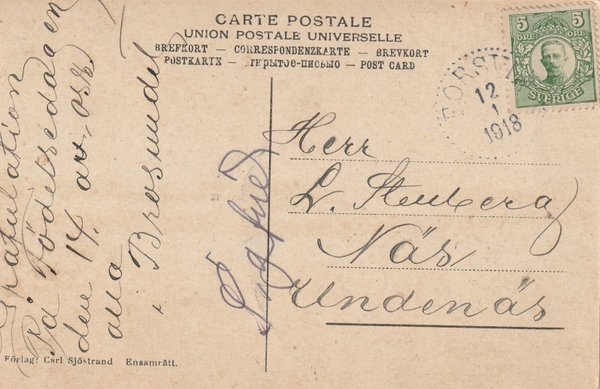 CARTE POSTALE
UNION POSTALE UNIVERSELLE
BREFKORT — CORRESPONDENZKARTE — BREVKORT
POSTKARTE — ОТКРЫТОЕ-ПИСЬМО — POST CARD
5 5
ÖRE ÖRE
SVERIGE
FORSVIK
12
1
1918
Gratulation
På Födelsedagen
den 14 av oss
alla
i Brosundet
Herr
L. Stenberg
Näs
Undenäs
Förlag: Carl Sjöstrand Ensamrätt.